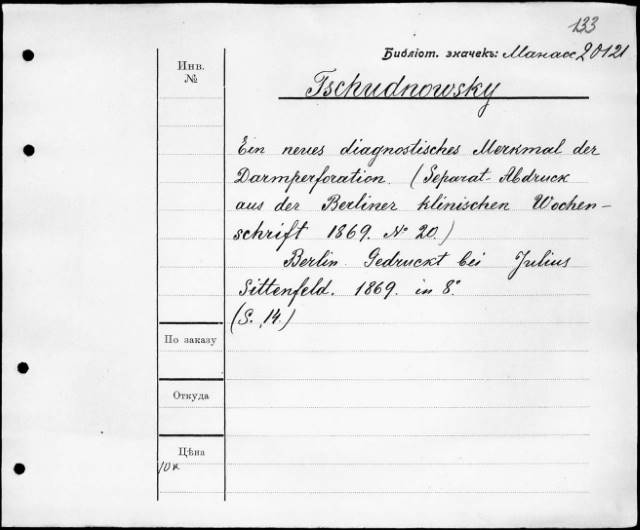 133
Библіот. значекъ: Манасс 20121
Инв.
№
Tschudnowsky
Ein neues diagnostisches Merkmal der
Darmperforation. (Separat-Abdruck
aus der Berliner klinischen Wochen-
schrift 1869. No 20.)
Berlin. Gedruckt bei Julius
Sittenfeld. 1869. in 8°.
(S. 14.)
По заказу
Откуда
Цѣна
10к